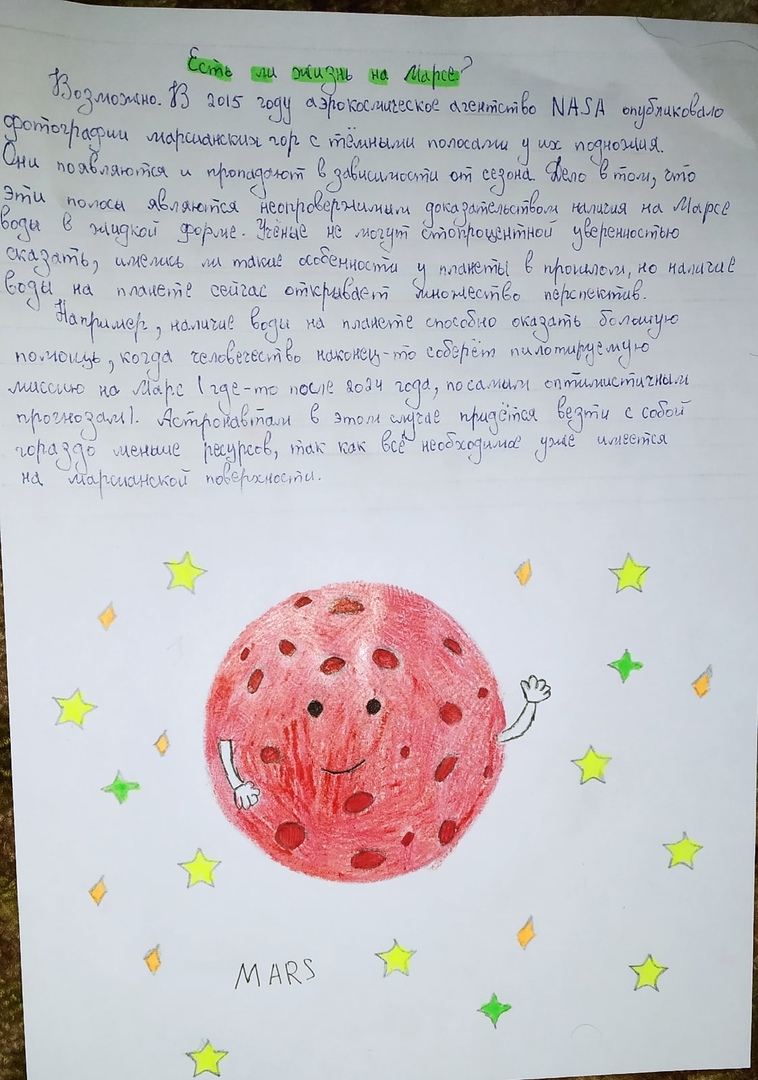 Есть ли жизнь на Марсе?
Возможно. В 2015 году аэрокосмическое агентство NASA опубликовало
фотографии марсианских гор с тёмными полосами у их подножия.
Они появляются и пропадают в зависимости от сезона. Дело в том, что
эти полосы являются неопровержимым доказательством наличия на Марсе
воды в жидкой форме. Учёные не могут стопроцентной уверенностью
сказать, имелись ли такие особенности у планеты в прошлом, но наличие
воды на планете сейчас открывает множество перспектив.
Например, наличие воды на планете способно оказать большую
помощь, когда человечество наконец-то соберёт пилотируемую
миссию на Марс (где-то после 2024 года, по самым оптимистичным
прогнозам). Астронавтам в этом случае придётся везти с собой
гораздо меньше ресурсов, так как всё необходимое уже имеется
на марсианской поверхности.
MARS